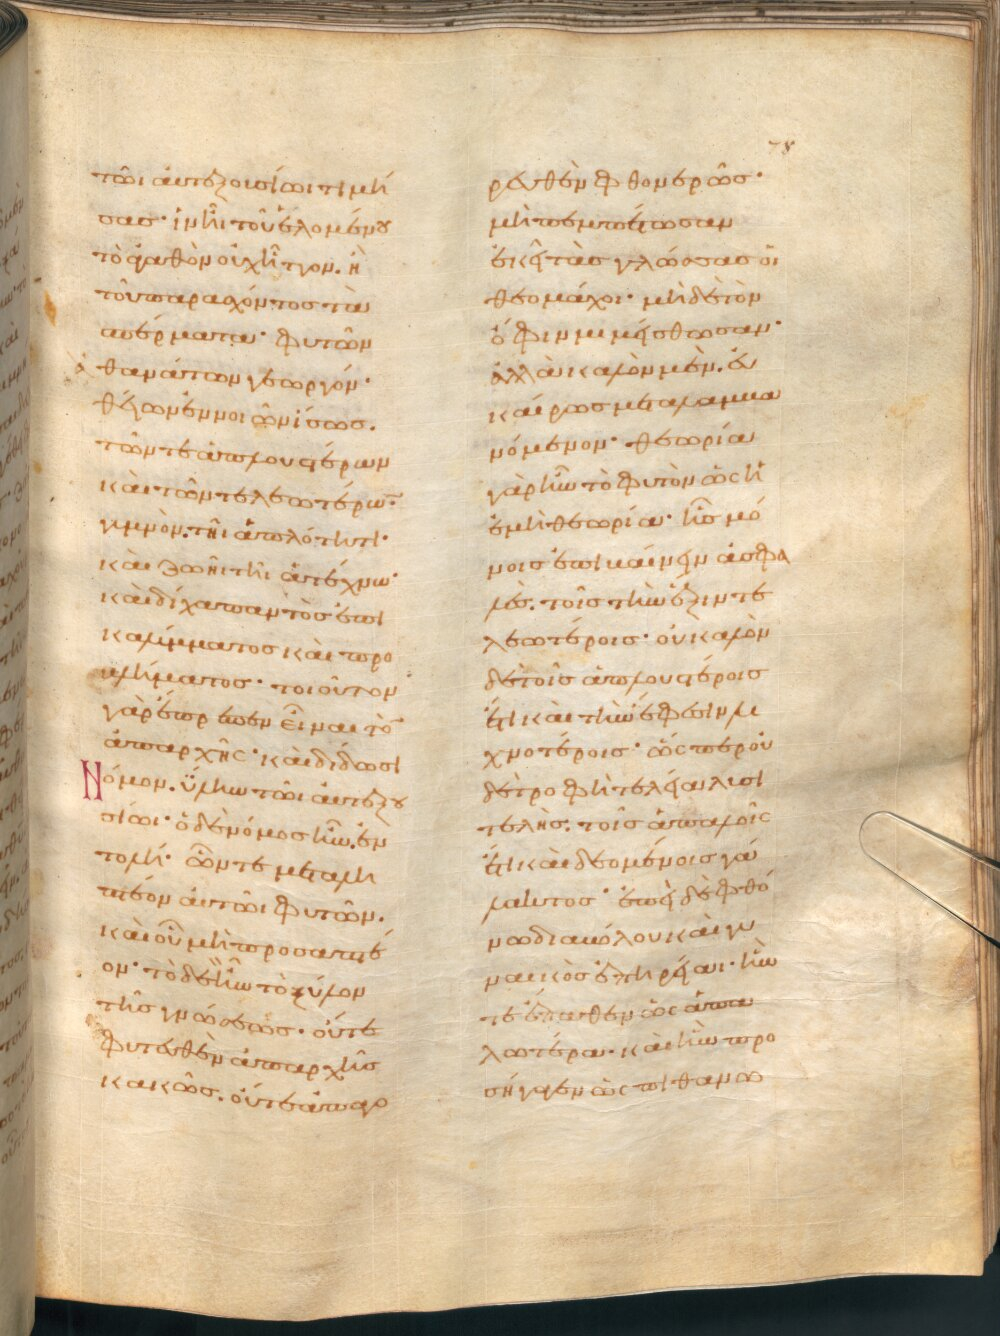 78
τῶι αὐτεξουσίωι τιμή
σας· ἵν ἦι τοῦ ἑλομένου
τὸ ἀγαθὸν οὐχ ἧττον. ἢ
τοῦ παρασχόντος τὰ
σπέρματα· φυτῶν
ἀθανάτων γεωργόν·
θείων ἐννοιῶν ἴσως.
τῶν τε ἁπλουστέρων
καὶ τῶν τελεωτέρων·
γυμνὸν. τῆι ἁπλότητι·
καὶ ζωῆι τῆι ἀτέχνω·
καὶ δίχα παντὸς ἐπι
καλύμματος καὶ προ
βλήματος· τοιοῦτον
γὰρ ἔπρεπεν εἶναι τὸν
ἀπαρχῆς· καὶ δίδωσι
Νόμον. ὕλην τῶι αὐτεξου
σίωι· ὁ δὲ νόμος ἦν. ἐν
τολὴ· ὧν τε μεταλη
πτέον αὐτῶι φυτῶν.
καὶ οὗ μὴ προσαπτέ
ον· τὸ δὲ ἦν τὸ ξύλον
τῆς γνώσεως· οὔτε
φυτευθὲν ἀπαρχῆς
κακῶς. οὔτε ἀπαγο
ρευθὲν φθονερῶς·
μὴ πεμπέτωσαν
ἐκεῖ τὰς γλώσσας οἱ
θεομάχοι· μὴδὲ τὸν
ὄφιν μιμείσθωσαν·
ἀλλὰ καλὸν μὲν. εὐ
καίρως μεταλαμβα
νόμενον· θεωρία
γὰρ ἦν τὸ φυτὸν ὡς ἡ
ἐμὴ θεωρία· ἧς μό
νοις ἐπιβαίνειν ἀσφα
λὲς. τοῖς τὴν ἕξιν τε
λεωτέροις· οὐ καλὸν
δὲ τοῖς ἁπλουστέροις
ἔτι καὶ τὴν ἔφεσιν λι
χνοτέροις· ὥσπερ οὐ
δὲ τροφὴ τελεία λυσι
τελὴς. τοῖς ἁπαλοῖς
ἔτι καὶ δεομένοις γά
λακτος· ἐπεὶ δὲ φθό
νω διαβόλου καὶ γυ
ναικὸς ἐπηρεία· ἣν
τε ἔπαθεν ὡς ἁπα
λωτέρα. καὶ ἣν προ
σήγαγεν ὡς πιθανω